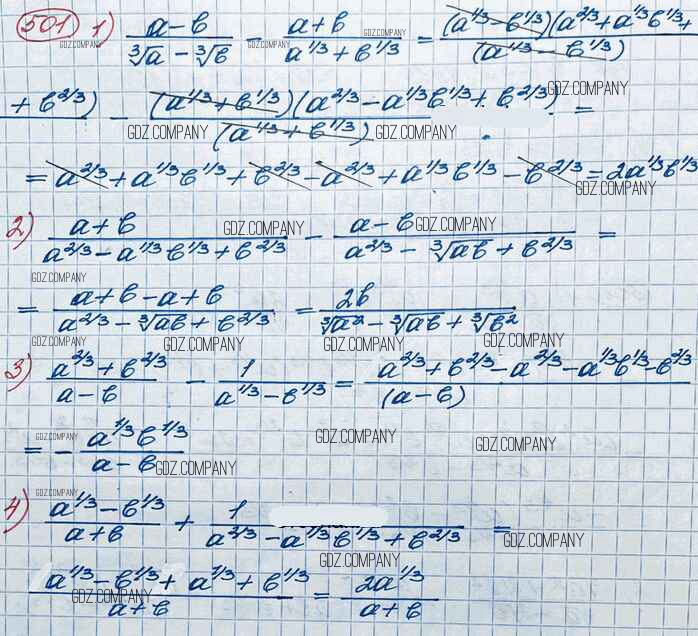 501 1) (a-b)/(∛a - ∛b) - (a+b)/(a^1/3 + b^1/3) = (a^1/3 - b^1/3)(a^2/3 + a^1/3 b^1/3 +
GDZ.COMPANY GDZ.COMPANY GDZ.COMPANY / (a^1/3 - b^1/3)
GDZ.COMPANY
+ b^2/3) - (a^1/3 + b^1/3)(a^2/3 - a^1/3 b^1/3 + b^2/3) / (a^1/3 + b^1/3) =
GDZ.COMPANY GDZ.COMPANY
= a^2/3 + a^1/3 b^1/3 + b^2/3 - a^2/3 + a^1/3 b^1/3 - b^2/3 = 2a^1/3 b^1/3
GDZ.COMPANY
2) (a+b)/(a^2/3 - a^1/3 b^1/3 + b^2/3) - (a-b)/(a^2/3 - ∛ab + b^2/3) =
GDZ.COMPANY GDZ.COMPANY
GDZ.COMPANY
= (a+b-a+b)/(a^2/3 - ∛ab + b^2/3) = 2b/(∛a² - ∛ab + ∛b²)
GDZ.COMPANY GDZ.COMPANY GDZ.COMPANY GDZ.COMPANY
3) (a^2/3 + b^2/3)/(a-b) - 1/(a^1/3 - b^1/3) = (a^2/3 + b^2/3 - a^2/3 - a^1/3 b^1/3 - b^2/3)/(a-b)
= - a^1/3 b^1/3/(a-b)
GDZ.COMPANY GDZ.COMPANY GDZ.COMPANY
GDZ.COMPANY
GDZ.COMPANY
4) (a^1/3 - b^1/3)/(a+b) + 1/(a^2/3 - a^1/3 b^1/3 + b^2/3) =
GDZ.COMPANY
GDZ.COMPANY
(a^1/3 - b^1/3 + a^1/3 + b^1/3)/(a+b) = 2a^1/3/(a+b)
GDZ.COMPANY